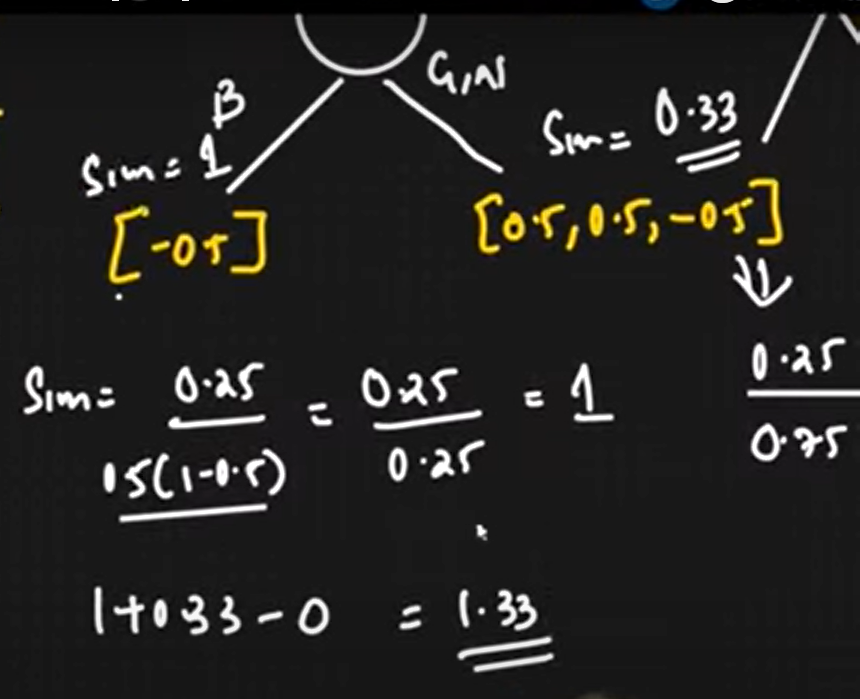 B
G,N
Sim = 1
Sim = 0.33
[-05]
[0.5, 0.5, -05]
Sim = 0.25 / 05(1-0.5) = 0.25 / 0.25 = 1
0.25 / 0.75
1+033-0 = 1.33